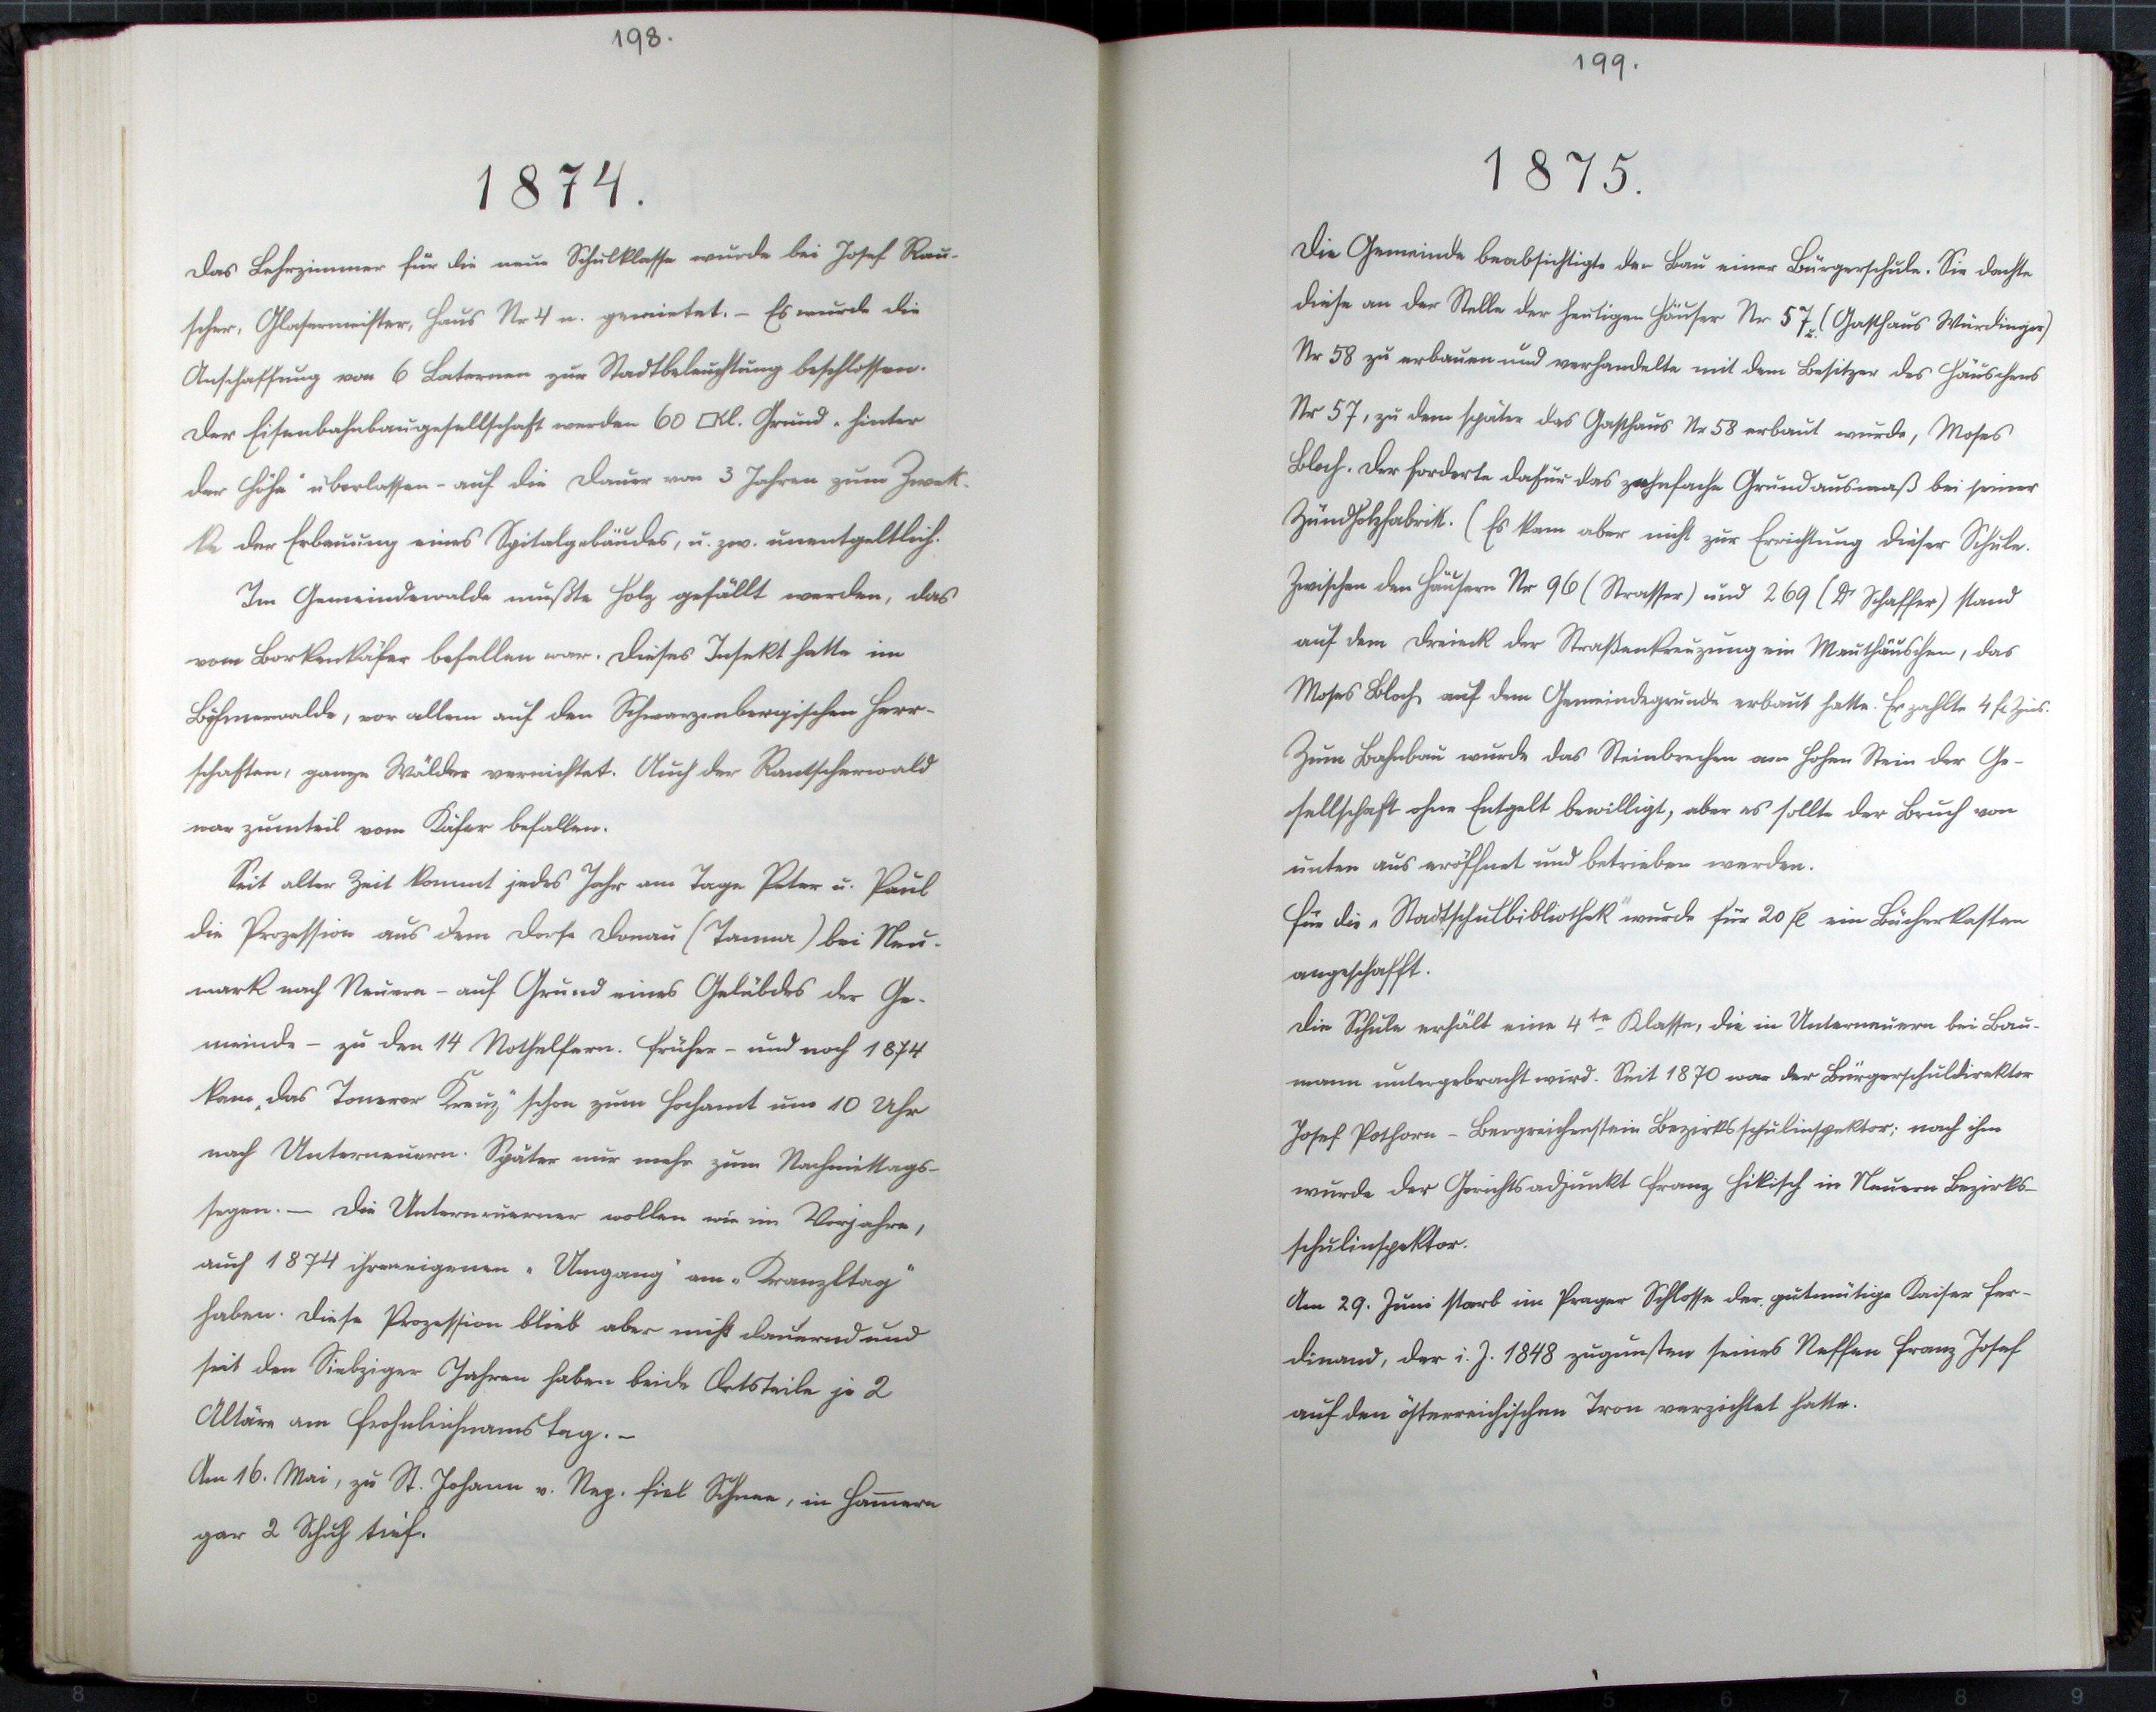 198.
1874.
Das Lehrzimmer für die neue Schulklasse wurde bei Josef Rau-
scher, Glasermeister, Haus Nr 4 u. gemietet. – Es wurde die
Anschaffung von 6 Laternen zur Stadtbeleuchtung beschlossen.
Der Eisenbahnbaugesellschaft werden 60 □Kl. Grund „hinter
der Höhe" überlassen – auf die Dauer von 3 Jahren zum Zwek-
ke der Erbauung eines Spitalgebäudes, u. zw. unentgeltlich.
Im Gemeindewalde mußte Holz gefällt werden, das
vom Borkenkäfer befallen war. Dieses Insekt hatte im
Böhmerwalde, vor allem auf den Schwarzenbergischen Herr-
schaften, ganze Wälder vernichtet. Auch der Rantscherwald
war zumteil vom Käfer befallen.
Seit alter Zeit kommt jedes Jahr am Tage Peter u. Paul
die Prozession aus dem Dorfe Donau (Tanna) bei Neu-
mark nach Neuern – auf Grund eines Gelübdes der Ge-
meinde – zu den 14 Nothelfern. Früher – und noch 1874
kam „das Tonerer Kreuz" schon zum Hochamt um 10 Uhr
nach Unterneuern. Später nur mehr zum Nachmittags-
segen. — Die Unterneuerner wollen wie im Vorjahre,
auch 1874 ihren eigenen „Umgang" am „Kranzltag"
haben. Diese Prozession blieb aber nicht dauernd und
seit den Siebziger Jahren haben beide Ortsteile je 2
Altäre am Frohnleichnamstag. –
Am 16. Mai, zu St. Johann v. Nep. fiel Schnee, in Ham̄ern
gar 2 Schuh tief.
199.
1875.
Die Gemeinde beabsichtigte den Bau einer Bürgerschule. Sie dachte
diese an der Stelle der heutigen Häuser Nr 57 u. (Gasthaus Würdinger)
Nr 58 zu erbauen und verhandelte mit dem Besitzer des Häuschens
Nr 57, zu dem später das Gasthaus Nr 58 erbaut wurde, Moses
Bloch. Der forderte dafür das zehnfache Grundausmaß bei seiner
Zündholzfabrik. (Es kam aber nicht zur Errichtung dieser Schule.
Zwischen den Häusern Nr 96 (Strasser) und 269 (Dr Schaffer) stand
auf dem Dreieck der Straßenkreuzung ein Mauthäuschen, das
Moses Bloch auf dem Gemeindegrunde erbaut hatte. Er zahlte 4 fl Zins.
Zum Bahnbau wurde das Steinbrechen am hohen Stein der Ge-
sellschaft ohne Entgelt bewilligt, aber es sollte der Bruch von
unten aus eröffnet und betrieben werden.
Für die „Stadtschulbibliothek" wurde für 20 fl ein Bücherkasten
angeschafft.
Die Schule erhält eine 4te Klasse, die in Unterneuern bei Bau-
mann untergebracht wird. Seit 1870 war der Bürgerschuldirektor
Josef Pothorn – Bergreichenstein Bezirksschulinspektor; nach ihm
wurde der Gerichtsadjunkt Franz Hikisch in Neuern Bezirks-
schulinspektor.
Am 29. Juni starb im Prager Schlosse der gutmütige Kaiser Fer-
dinand, der i. J. 1848 zugunsten seines Neffen Franz Josef
auf den österreichischen Tron verzichtet hatte.